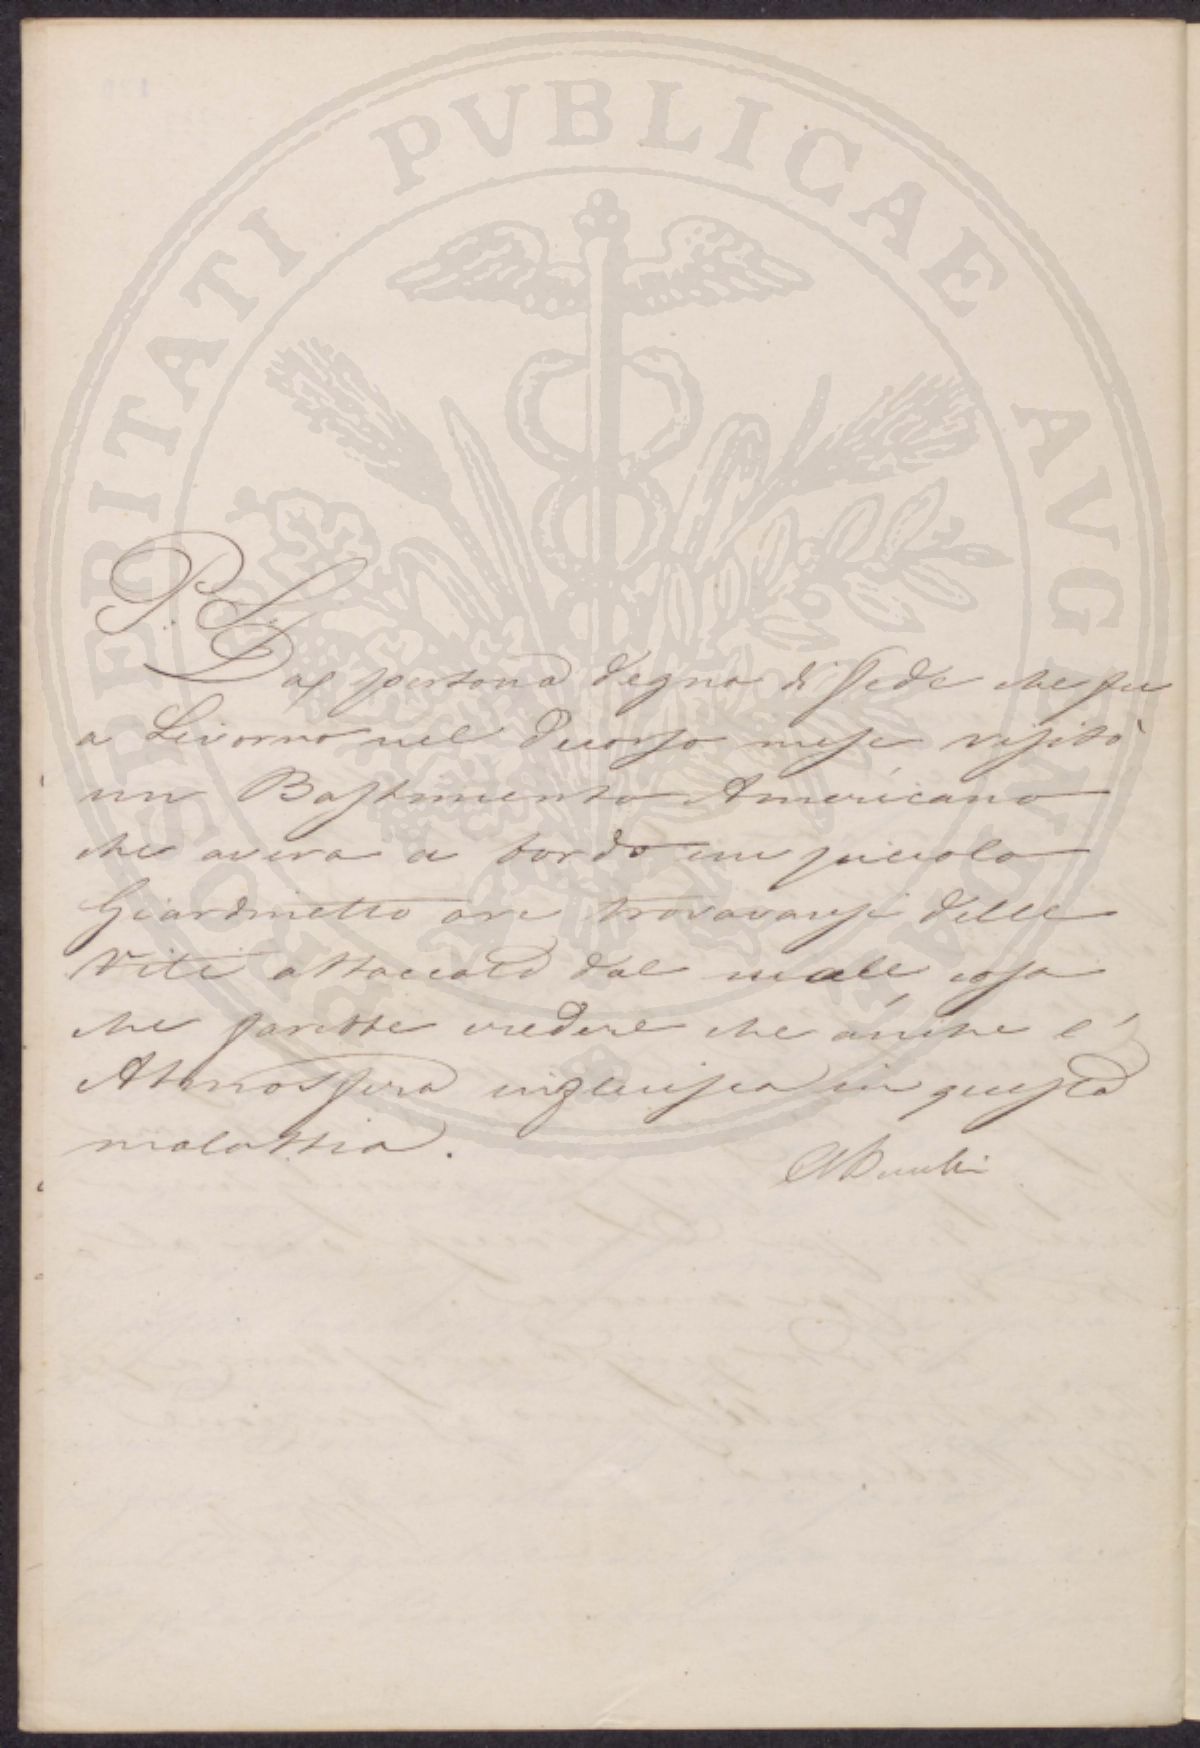 PROSPERITATI PUBLICAE AUGENDAE
P. S.
Da persona degna di Fede che fu
a Livorno nel decorso mese visitò
un Bastimento Americano
che aveva a bordo un piccolo
Giardinetto ove trovavansi delle
Viti attaccate dal male, cosa
che farebbe credere che anche l'
Atmosfera influisca in questa
malattia.